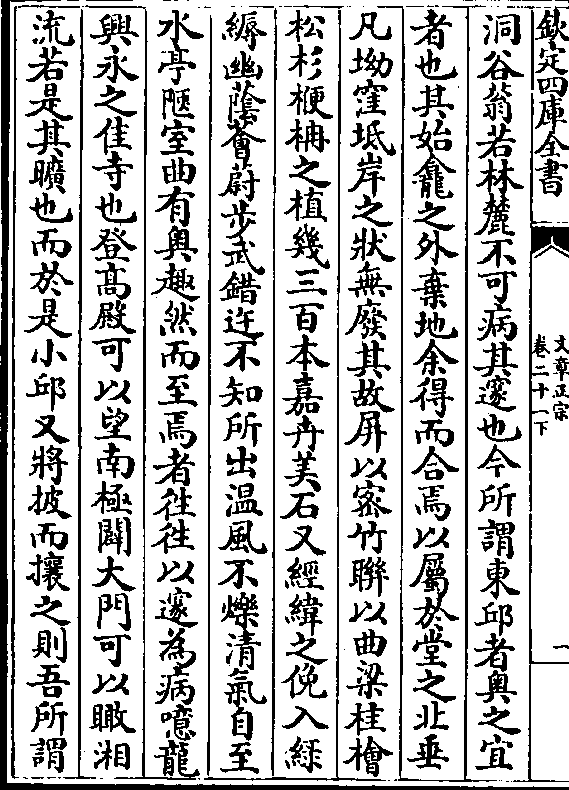 欽定四庫全書
文章正宗
卷二十一下
一
洞谷蓊若林麓不可病其邃也今所謂東邱者奥之宜
者也其始龕之外棄地余得而合焉以屬於堂之北垂
凡坳窪坻岸之狀無廢其故屏以密竹聯以曲梁桂檜
松杉楩柟之植幾三百本嘉卉美石又經緯之俛入緑
縟幽蔭薈蔚步武錯迕不知所出温風不爍清氣自至
水亭陿室曲有奥趣然而至焉者往往以邃為病噫龍
興永之佳寺也登髙殿可以望南極闢大門可以瞰湘
流若是其曠也而於是小邱又將披而攘之則吾所謂